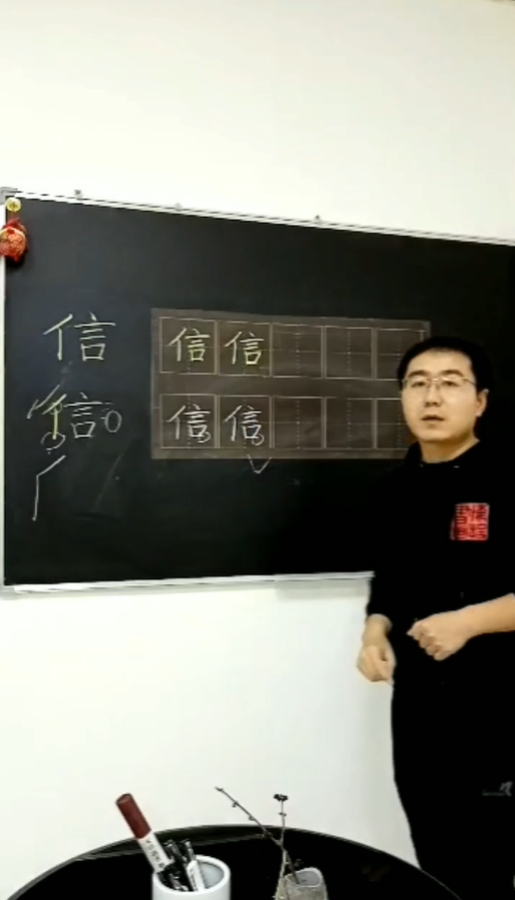 信 信 信
信 信 信